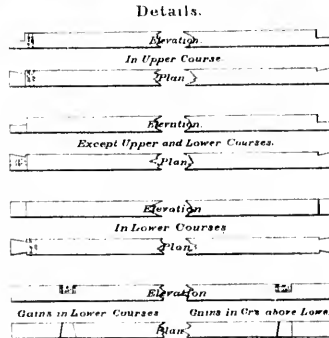 Details.
Elevation
In Upper Course
Plan
Elevation.
Except Upper and Lower Courses.
Plan
Elevation
In Lower Courses
Plan
Elevation
Gains in Lower Courses Gains in Crs above Lowe
Plan